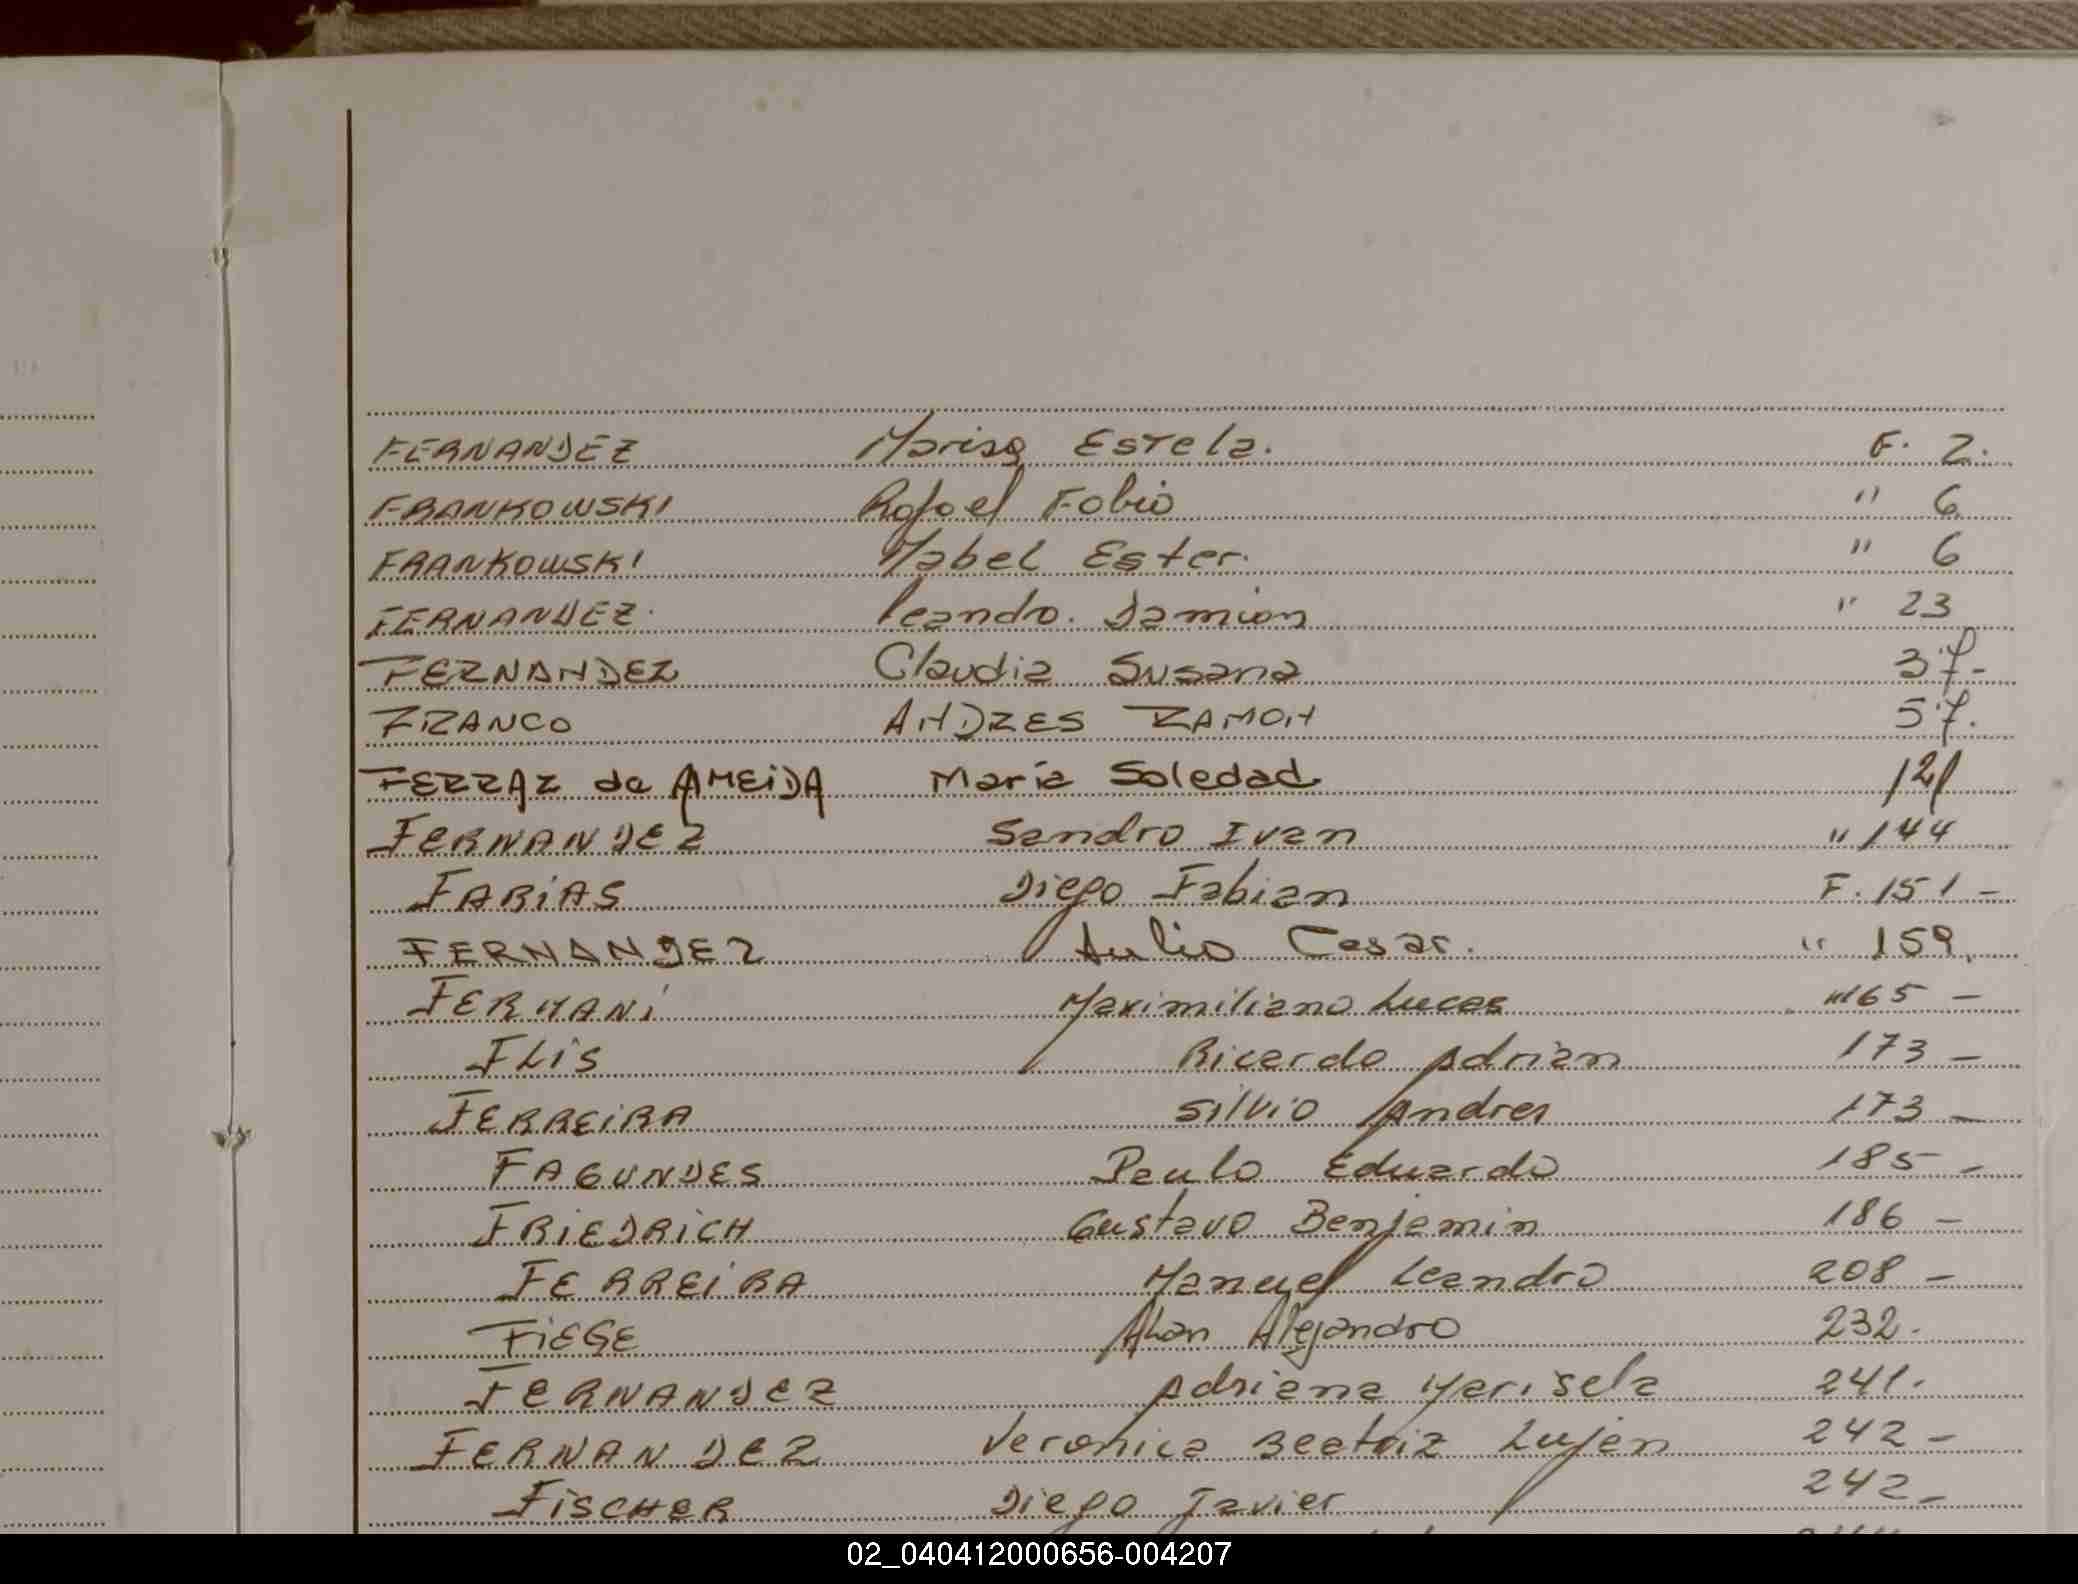 FERNANDEZ Marisa Estela. F. 2.
FRANKOWSKI Rafael Fabio " 6
FRANKOWSKI Mabel Ester. " 6
FERNANDEZ. Leandro. Damian " 23
FERNANDEZ Claudia Susana 37-
FRANCO ANDRES RAMON 57.
FERRAZ de AMEIDA Maria Soledad 121
FERNANDEZ Sandro Ivan " 144
FARiAS Diego Fabian F. 151 -
FERNANDEZ Julio Cesar. " 159.
FERMANi Maximiliano Lucas "165 -
FLiS Ricardo Adrian 173 -
FERREiRA Silvio Andres 173 -
FAGUNDES Paulo Eduardo 185 -
FRiEDRiCH Gustavo Benjamin 186 -
FERREiRA Manuel Leandro 208 -
FiEGE Alan Alejandro 232.
FERNANDEZ Adriana Marisela 241.
FERNANDEZ Veronica Beatriz Lujan 242 -
FiSCHER Diego Javier 242 -
02_040412000656-004207